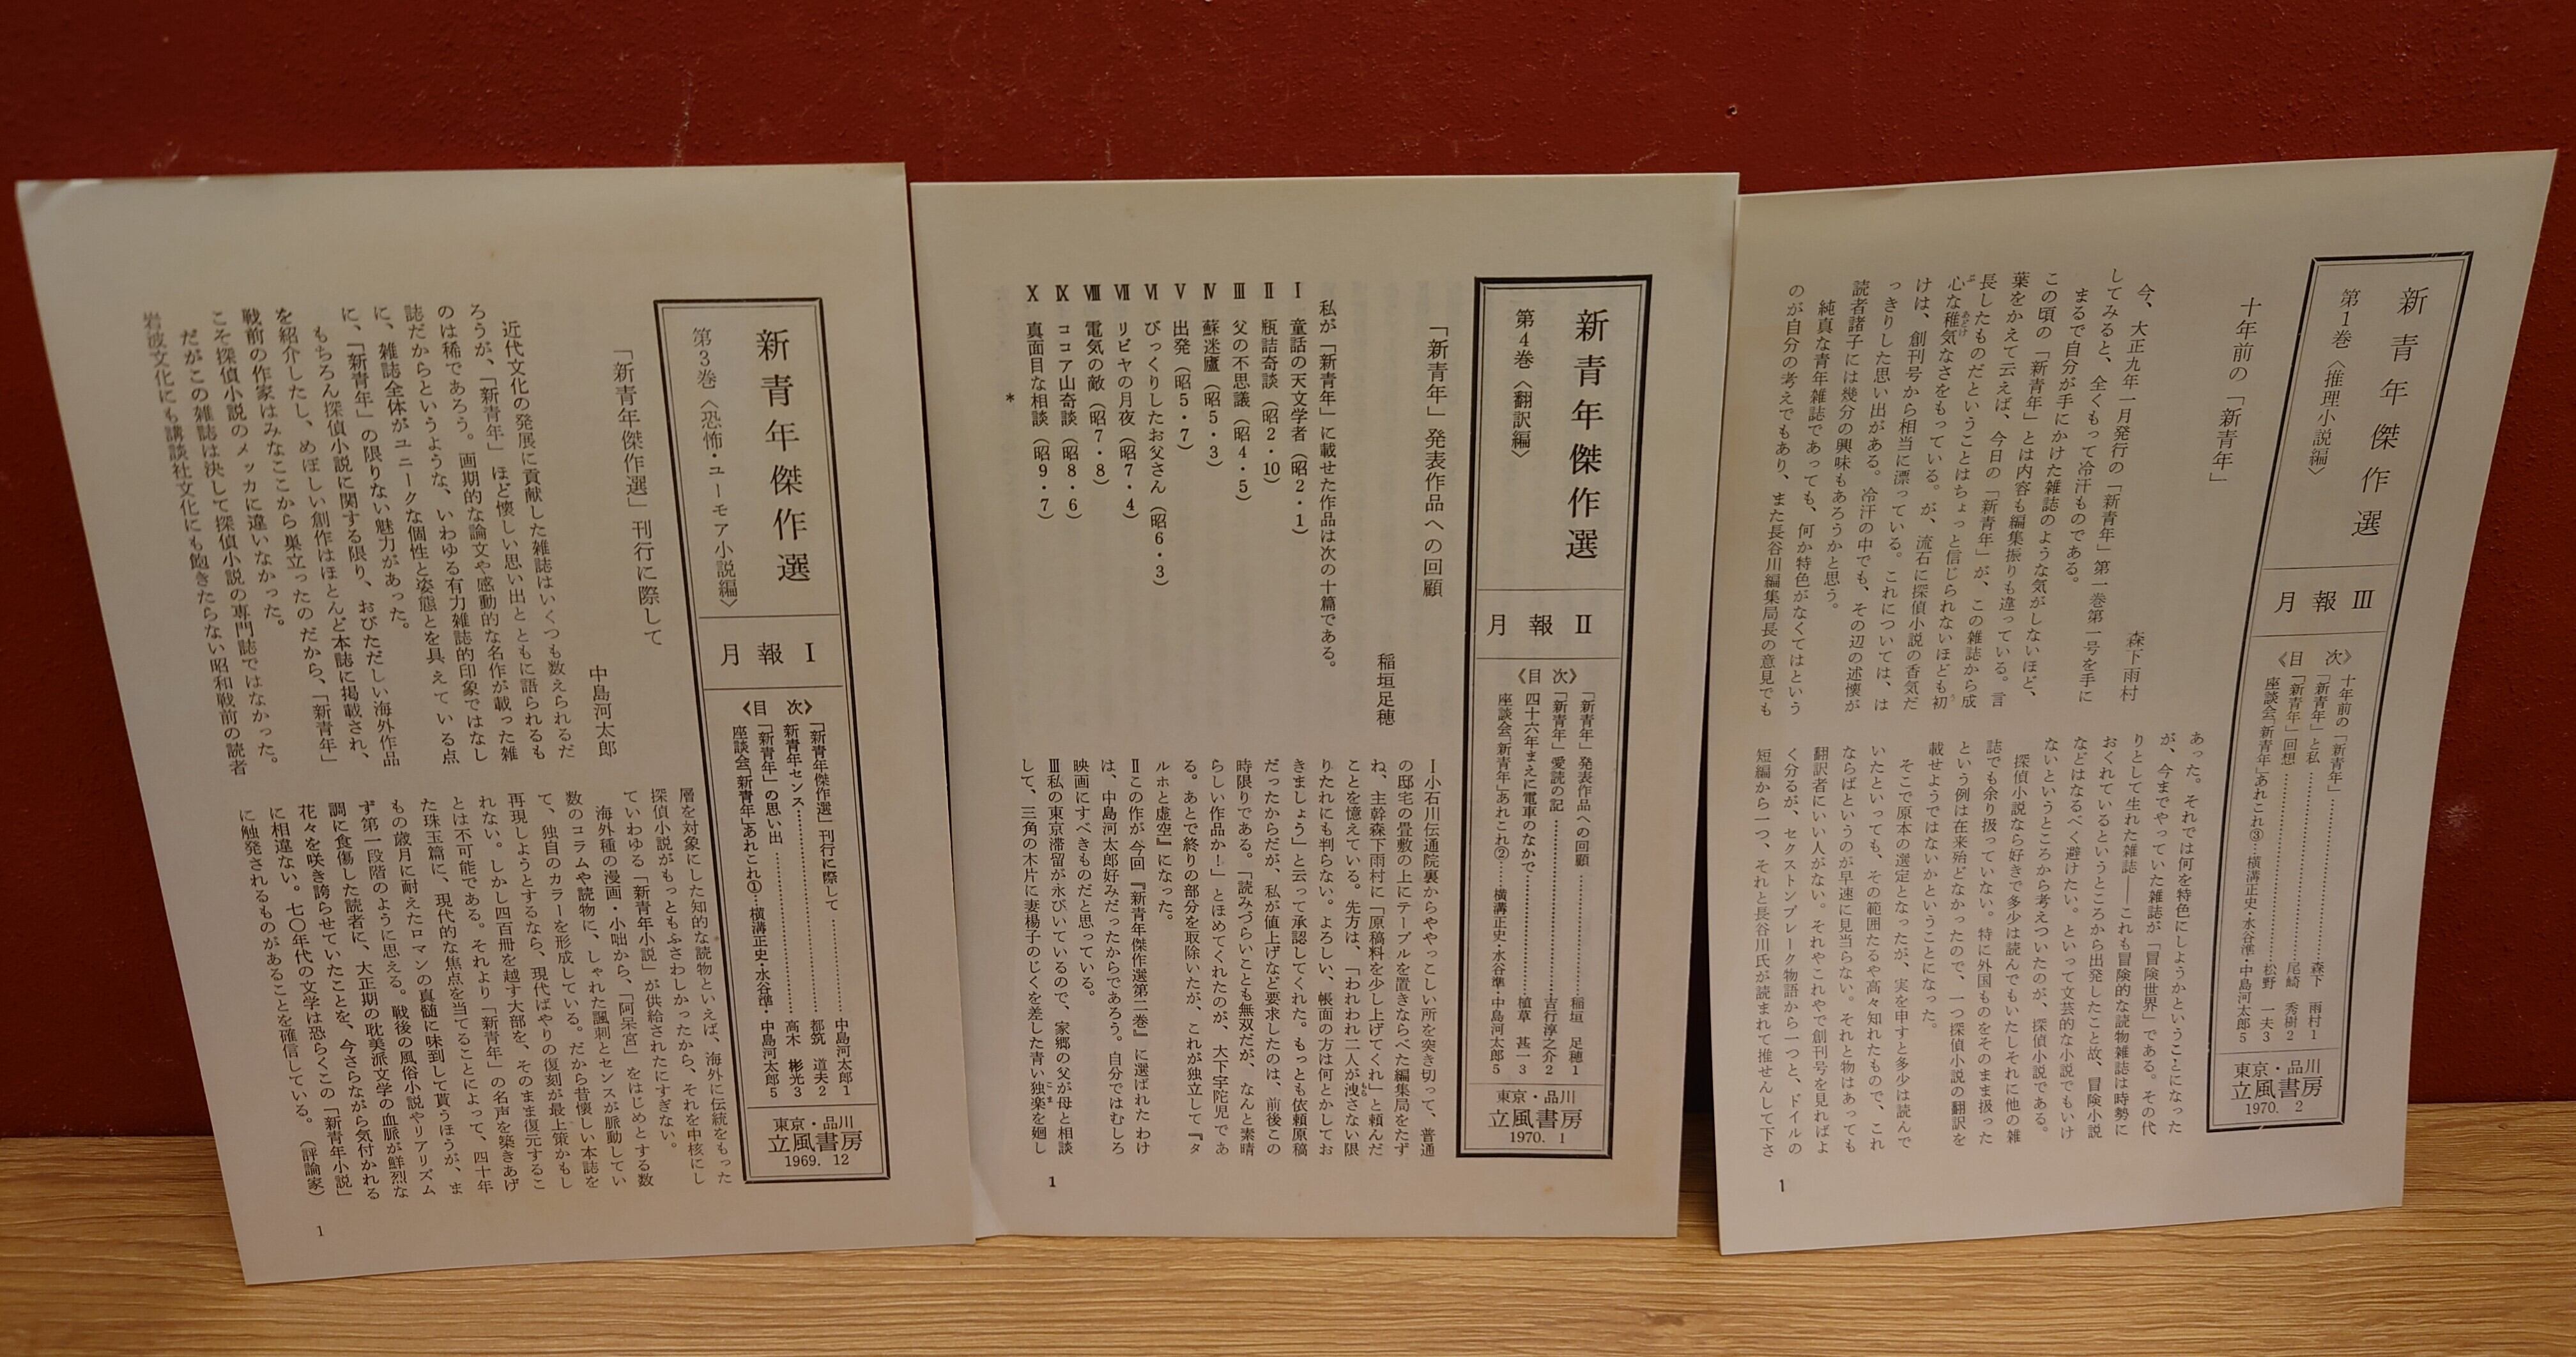 新青年傑作選
第3巻〈恐怖・ユーモア小説編〉
月報Ⅰ
《目次》
「新青年傑作選」刊行に際して………中島河太郎1
新青年センス………都筑　道夫2
「新青年」の思い出………高木　彬光3
座談会「新青年」あれこれ①…横溝正史・水谷準・中島河太郎5
東京・品川
立風書房
1969. 12
「新青年傑作選」刊行に際して
中島河太郎
近代文化の発展に貢献した雑誌はいくつも数えられるだ
ろうが、「新青年」ほど懐しい思い出とともに語られるも
のは稀であろう。画期的な論文や感動的な名作が載った雑
誌だからというような、いわゆる有力雑誌的印象ではなし
に、雑誌全体がユニークな個性と姿態とを具えている点
に、「新青年」の限りない魅力があった。
もちろん探偵小説に関する限り、おびただしい海外作品
を紹介したし、めぼしい創作はほとんど本誌に掲載され、
戦前の作家はみなここから巣立ったのだから、「新青年」
こそ探偵小説のメッカに違いなかった。
だがこの雑誌は決して探偵小説の専門誌ではなかった。
岩波文化にも講談社文化にも飽きたらない昭和戦前の読者
層を対象にした知的な読物といえば、海外に伝統をもった
探偵小説がもっともふさわしかったから、それを中核にし
ていわゆる「新青年小説」が供給されたにすぎない。
海外種の漫画・小咄から、「阿呆宮」をはじめとする数
数のコラムや読物に、しゃれた諷刺とセンスが脈動してい
て、独自のカラーを形成している。だから昔懐しい本誌を
再現しようとするなら、現代ばやりの復刻が最上策かもし
れない。しかし四百冊を越す大部を、そのまま復元するこ
とは不可能である。それより「新青年」の名声を築きあげ
た珠玉篇に、現代的な焦点を当てることによって、四十年
もの歳月に耐えたロマンの真髄に味到して貰うほうが、ま
ず第一段階のように思える。戦後の風俗小説やリアリズム
調に食傷した読者に、大正期の耽美派文学の血脈が鮮烈な
花々を咲き誇らせていたことを、今さらながら気付かれる
に相違ない。七〇年代の文学は恐らくこの「新青年小説」
に触発されるものがあることを確信している。（評論家）
1
新青年傑作選
第4巻〈翻訳編〉
月報Ⅱ
《目次》
「新青年」発表作品への回顧………稲垣　足穂1
「新青年」愛読の記………吉行淳之介2
四十六年まえに電車のなかで………植草　甚一3
座談会「新青年」あれこれ②…横溝正史・水谷準・中島河太郎5
東京・品川
立風書房
1970. 1
「新青年」発表作品への回顧
稲垣足穂
私が「新青年」に載せた作品は次の十篇である。
Ⅰ　童話の天文学者（昭2・1）
Ⅱ　瓶詰奇談（昭2・10）
Ⅲ　父の不思議（昭4・5）
Ⅳ　蘇迷廬（昭5・3）
Ⅴ　出発（昭5・7）
Ⅵ　びっくりしたお父さん（昭6・3）
Ⅶ　リビヤの月夜（昭7・4）
Ⅷ　電気の敵（昭7・8）
Ⅸ　ココア山奇談（昭8・6）
Ⅹ　真面目な相談（昭9・7）
＊
Ⅰ小石川伝通院裏からややっこしい所を突き切って、普通
の邸宅の畳敷の上にテーブルを置きならべた編集局をたず
ね、主幹森下雨村に「原稿料を少し上げてくれ」と頼んだ
ことを憶えている。先方は、「われわれ二人が洩さない限
りたれにも判らない。よろしい、帳面の方は何とかしてお
きましょう」と云って承認してくれた。もっとも依頼原稿
だったからだが、私が値上げなど要求したのは、前後この
時限りである。「読みづらいことも無双だが、なんと素晴
らしい作品か！」とほめてくれたのが、大下宇陀児であ
る。あとで終りの部分を取除いたが、これが独立して『タ
ルホと虚空』になった。
Ⅱこの作が今回『新青年傑作選第二巻』に選ばれたわけ
は、中島河太郎好みだったからであろう。自分ではむしろ
映画にすべきものだと思っている。
Ⅲ私の東京滞留が永びいているので、家郷の父が母と相談
して、三角の木片に妻楊子のじくを差した青い独楽を廻し
1
新青年傑作選
第1巻〈推理小説編〉
月報Ⅲ
《目次》
十年前の「新青年」………森下　雨村1
「新青年」と私………尾崎　秀樹2
「新青年」回想………松野　一夫3
座談会「新青年」あれこれ③…横溝正史・水谷準・中島河太郎5
東京・品川
立風書房
1970. 2
十年前の「新青年」
森下雨村
今、大正九年一月発行の「新青年」第一巻第一号を手に
してみると、全くもって冷汗ものである。
まるで自分が手にかけた雑誌のような気がしないほど、
この頃の「新青年」とは内容も編集振りも違っている。言
葉をかえて云えば、今日の「新青年」が、この雑誌から成
長したものだということはちょっと信じられないほども初
心な稚気なさをもっている。が、流石に探偵小説の香気だ
けは、創刊号から相当に漂っている。これについては、は
っきりした思い出がある。冷汗の中でも、その辺の述懐が
読者諸子には幾分の興味もあろうかと思う。
純真な青年雑誌であっても、何か特色がなくてはという
のが自分の考えでもあり、また長谷川編集局長の意見でも
あった。それでは何を特色にしようかということになった
が、今までやっていた雑誌が「冒険世界」である。その代
りとして生れた雑誌——これも冒険的な読物雑誌は時勢に
おくれているというところから出発したこと故、冒険小説
などはなるべく避けたい。といって文芸的な小説でもいけ
ないというところから考えついたのが、探偵小説である。
探偵小説なら好きで多少は読んでもいたしそれに他の雑
誌でも余り扱っていない。特に外国ものをそのまま扱った
という例は在来殆どなかったので、一つ探偵小説の翻訳を
載せようではないかということになった。
そこで原本の選定となったが、実を申すと多少は読んで
いたといっても、その範囲たるや高々知れたもので、これ
ならばというのが早速に見当らない。それと物はあっても
翻訳者にいい人がない。それやこれやで創刊号を見ればよ
く分るが、セクストンブレーク物語から一つと、ドイルの
短編から一つ、それと長谷川氏が読まれて推せんして下さ
1